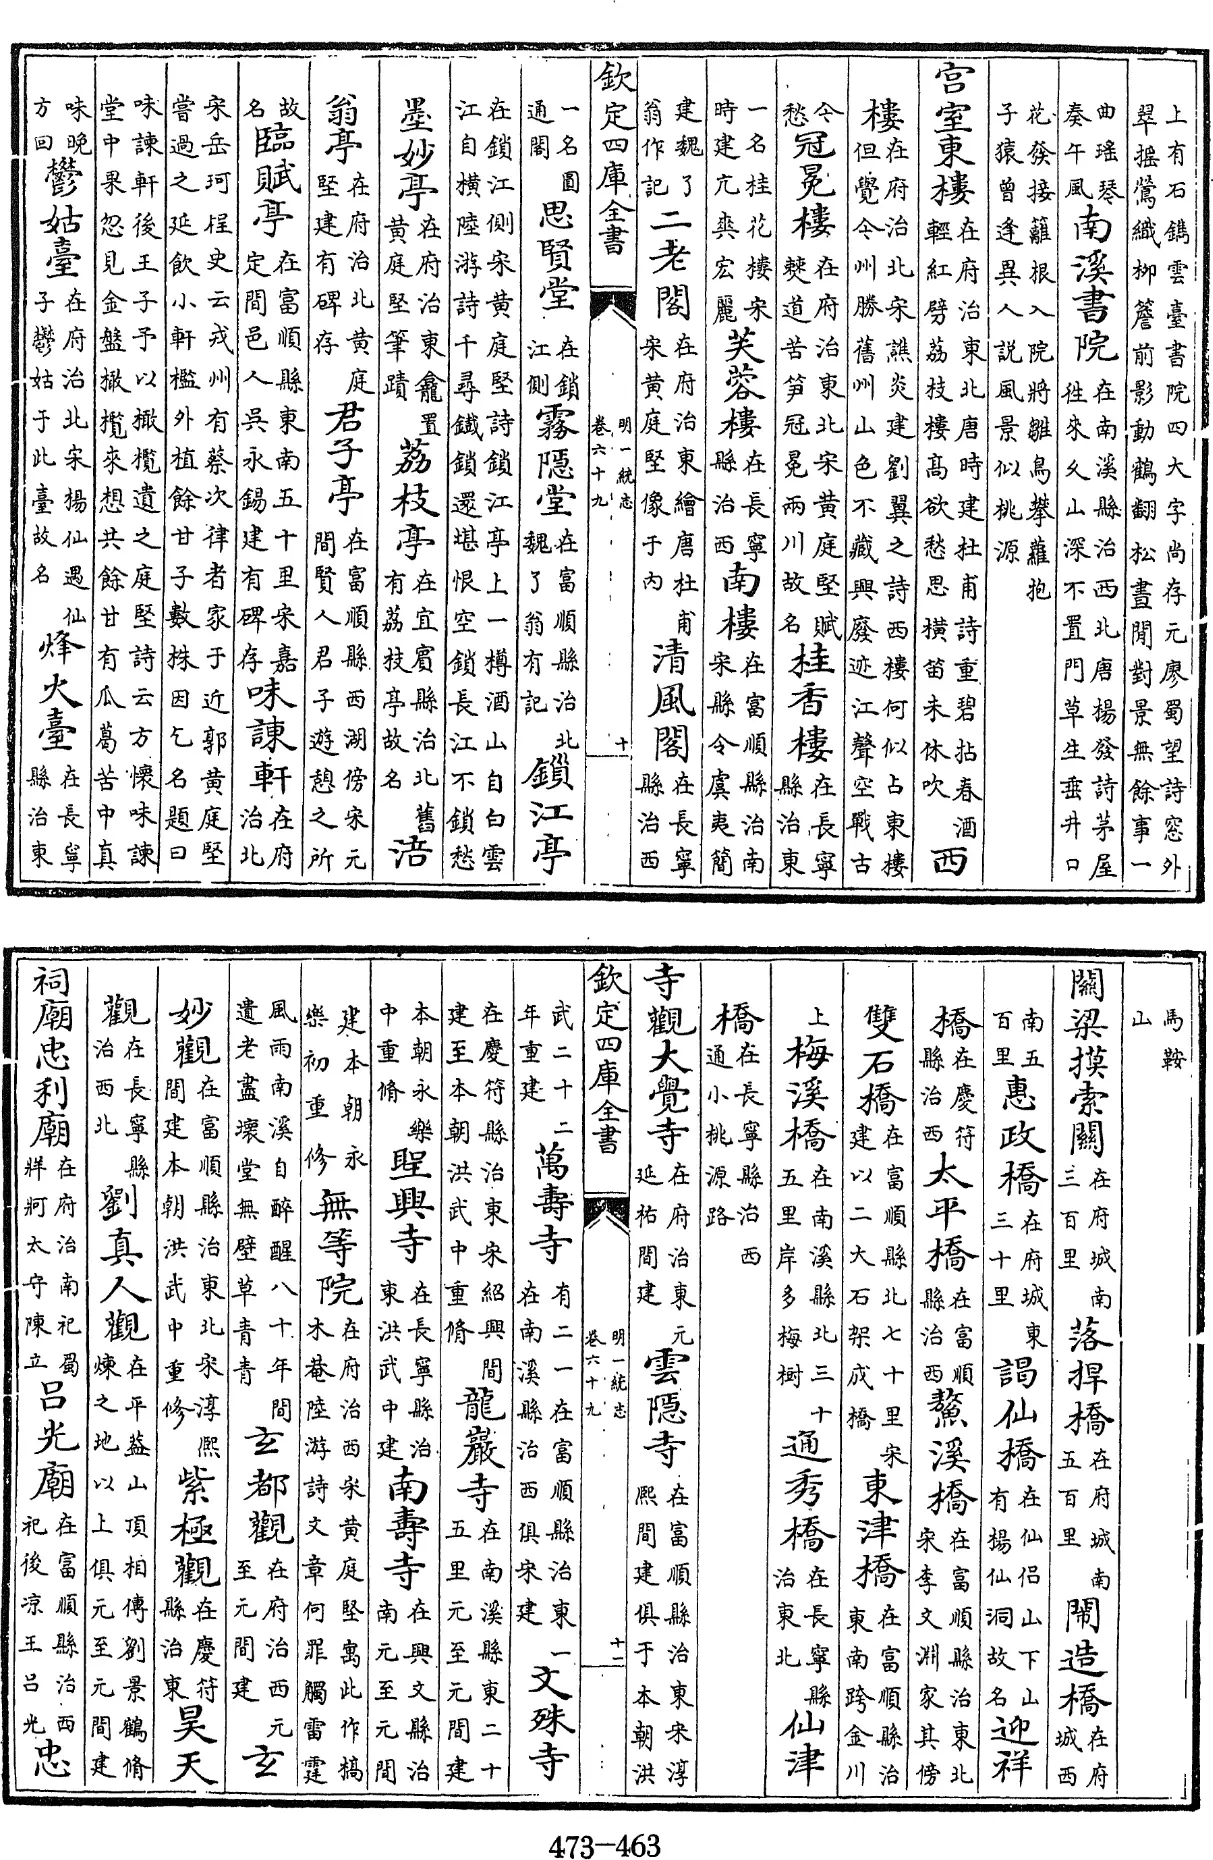 上有石鐫雲臺書院四大字尚存元廖蜀望詩窓外翠摇鶯織柳簷前影動鶴翻松晝閒對景無餘事一
曲瑶琴奏午風南溪書院在南溪縣治西北唐楊發詩茅屋往來久山深不置門草生垂井口
花發接籬根入院將雛鳥攀蘿抱子猿曾逢異人説風景似桃源
宫室東樓在府治東北唐時建杜甫詩重碧拈春酒輕紅劈荔枝樓高欲愁思横笛未休吹西
樓在府治北宋譙炎建劉翼之詩西樓何似占東樓但覺今州勝舊州山色不藏興廢迹江聲空戰古
今愁冠冕樓在府治東北宋黄庭堅賦僰道苦笋冠冕兩川故名桂香樓在長寧縣治東
一名桂花樓宋時建亢爽宏麗芙蓉樓在長寧縣治西南樓在富順縣治南宋縣令虞夷簡
建魏了翁作記二老閣在府治東繪唐杜甫宋黄庭堅像于内清風閣在長寧縣治西
欽定四庫全書 明一統志卷六十九 十
一名圓通閣思賢堂在鎖江側霧隱堂在富順縣治北魏了翁有記鎖江亭
在鎖江側宋黄庭堅詩鎖江亭上一樽酒山自白雲江自横陸游詩千尋鐵鎖還堪恨空鎖長江不鎖愁
墨妙亭在府治東龕置黄庭堅筆蹟荔枝亭在宜賓縣治北舊有荔枝亭故名涪
翁亭在府治北黄庭堅建有碑存君子亭在富順縣西湖傍宋元間賢人君子遊憩之所
故名臨賦亭在富順縣東南五十里宋嘉定間邑人吳永錫建有碑存味諫軒在府治北
宋岳珂桯史云戎州有蔡次律者家于近郭黄庭堅嘗過之延飲小軒檻外植餘甘子數株因乞名題曰
味諫軒後王子予以橄欖遺之庭堅詩云方懷味諫堂中果忽見金盤橄欖來想共餘甘有瓜葛苦中真
味晚方回鬱姑臺在府治北宋揚仙遇仙子鬱姑于此臺故名烽火臺在長寧縣治東
馬鞍山
關梁摸索關在府城南三百里落捍橋在府城南五百里鬧造橋在府城西
南五百里惠政橋在府城東三十里謁仙橋在仙侣山下山有揚仙洞故名迎祥
橋在慶符縣治西太平橋在富順縣治西鰲溪橋在富順縣治東北宋李文淵家其傍
雙石橋在富順縣北七十里宋建以二大石架成橋東津橋在富順縣治東南跨金川
上梅溪橋在南溪縣北三十五里岸多梅樹通秀橋在長寧縣治東北仙津
橋在長寧縣治西通小桃源路
寺觀大覺寺在府治東元延祐間建雲隱寺在富順縣治東宋淳熙間建俱于本朝洪
欽定四庫全書 明一統志卷六十九 十二
武二十二年重建萬壽寺有二一在富順縣治東一在南溪縣治西俱宋建文殊寺
在慶符縣治東宋紹興間建至本朝洪武中重脩龍巖寺在南溪縣東二十五里元至元間建
本朝永樂中重脩聖興寺在長寧縣治東洪武中建南壽寺在興文縣治南元至元間
建本朝永樂初重修無等院在府治西宋黄庭堅寓此作槁木菴陸游詩文章何罪觸雷霆
風雨南溪自醉醒八十年間遺老盡壞堂無壁草青青玄都觀在府治西元至元間建玄
妙觀在富順縣治東北宋淳熙間建本朝洪武中重修紫極觀在慶符縣治東昊天
觀在長寧縣治西北劉真人觀在平葢山頂相傳劉景鶴脩煉之地以上俱元至元間建
祠廟忠利廟在府治南祀蜀牂牁太守陳立吕光廟在富順縣治西祀後凉王吕光忠
473-463